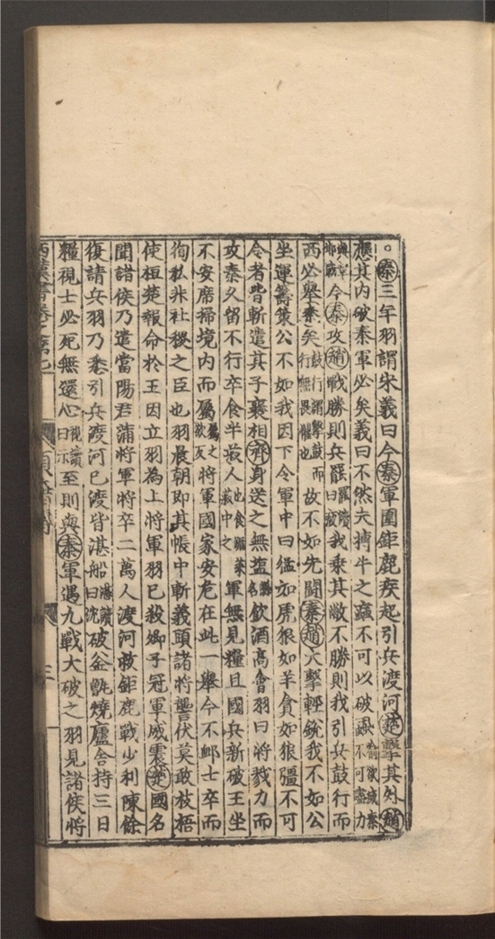 ○秦三年羽謂宋義曰今秦軍圍鉅鹿疾起引兵渡河楚擊其外趙
應其内破秦軍必矣義曰不然夫搏牛之蝱不可以破蝨
今秦攻趙戰勝則兵罷我乘其敝不勝則我引兵鼓行而
西必舉秦矣鼓行謂擊鼓而行無畏懼也故不如先鬪秦趙夫擊輕銳我不如公
坐運籌策公不如我因下令軍中曰猛如虎狠如羊貪如狼彊不可
令者皆斬遣其子襄相齊身送之無塩飲酒高會羽曰將戮力而
攻秦久留不行卒食半菽軍無見糧且國兵新破王坐
不安席掃境内而屬將軍國家安危在此一舉今不卹士卒而
徇私非社稷之臣也羽晨朝即其帳中斬義頭諸將讋伏莫敢枝梧
使桓楚報命於王因立羽為上將軍羽已殺卿子冠軍威震楚國名
聞諸侯乃遣當陽君蒲將軍將卒二萬人渡河救鉅鹿戰少利陳餘
復請兵羽乃悉引兵渡河已渡皆湛船破釜甑燒廬舍持三日
糧視士必死無還心至則與秦軍遇九戰大破之羽見諸侯將